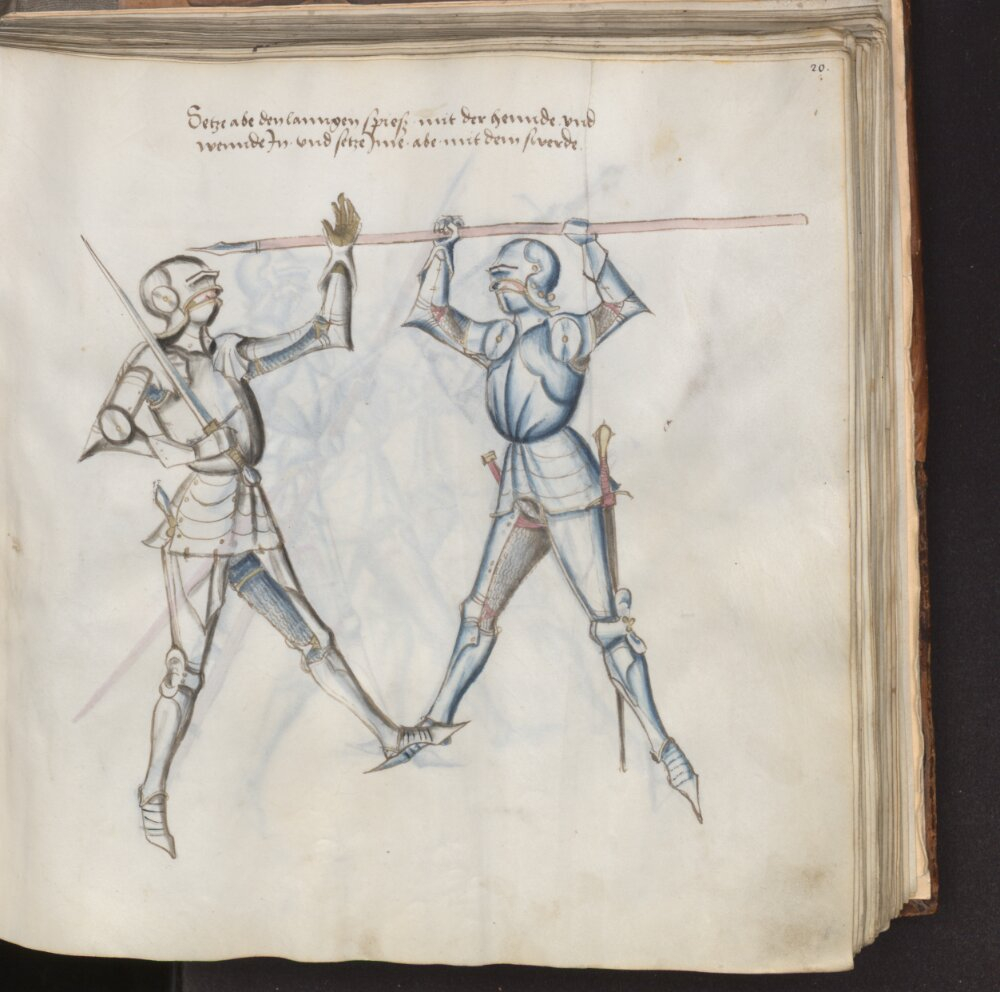 20.
Setze abe den lanngen spiess mit der hennde vnd
wennde In vnd setze Ime abe mit dem swerde.